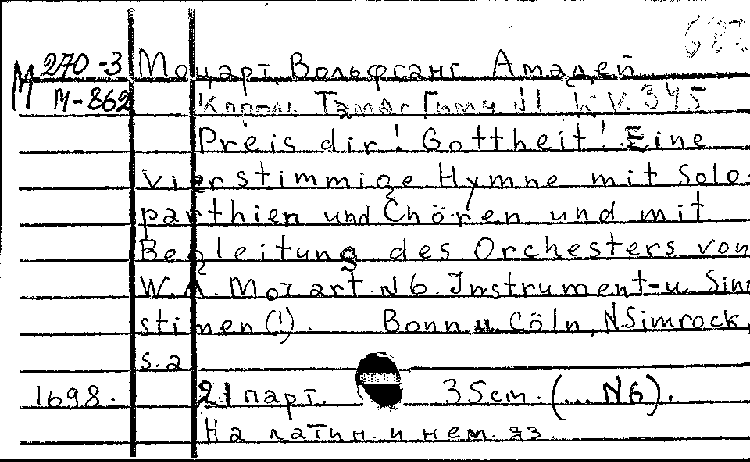 М 270-3 Моцарт, Вольфганг Амадей
М-862 Король Тамос Гимн №1. KV. 345
Preis dir! Gottheit! Eine
vierstimmige Hymne mit Solo-
parthien und Chören und mit
Begleitung des Orchesters von
W.A. Mozart. N6. Instrument-u. Sin
stimen (!). Bonn u. Cöln, N. Simrock,
s.a
1698. 21 парт. 35 см. (... N6).
На латин. и нем. яз